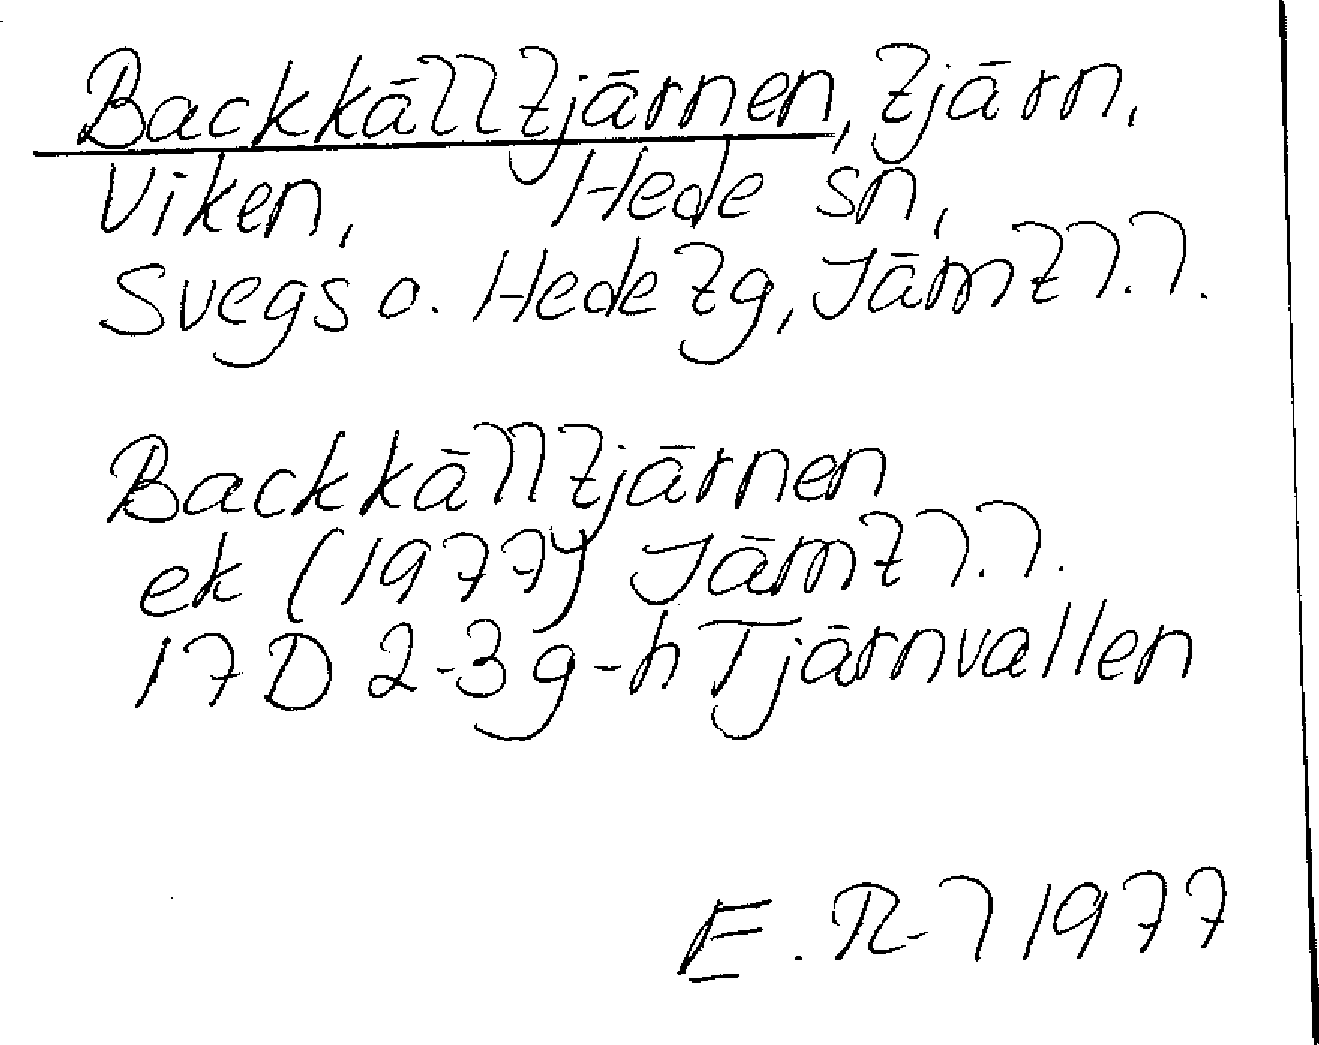 Backkälltjärnen, tjärn,
Viken, Hede sn,
Svegs o. Hede tg, Jämtl.l.
Backkälltjärnen
ek (1977) Jämtl.l.
17D 2-3 g-h Tjärnvallen
E. R-l 1977